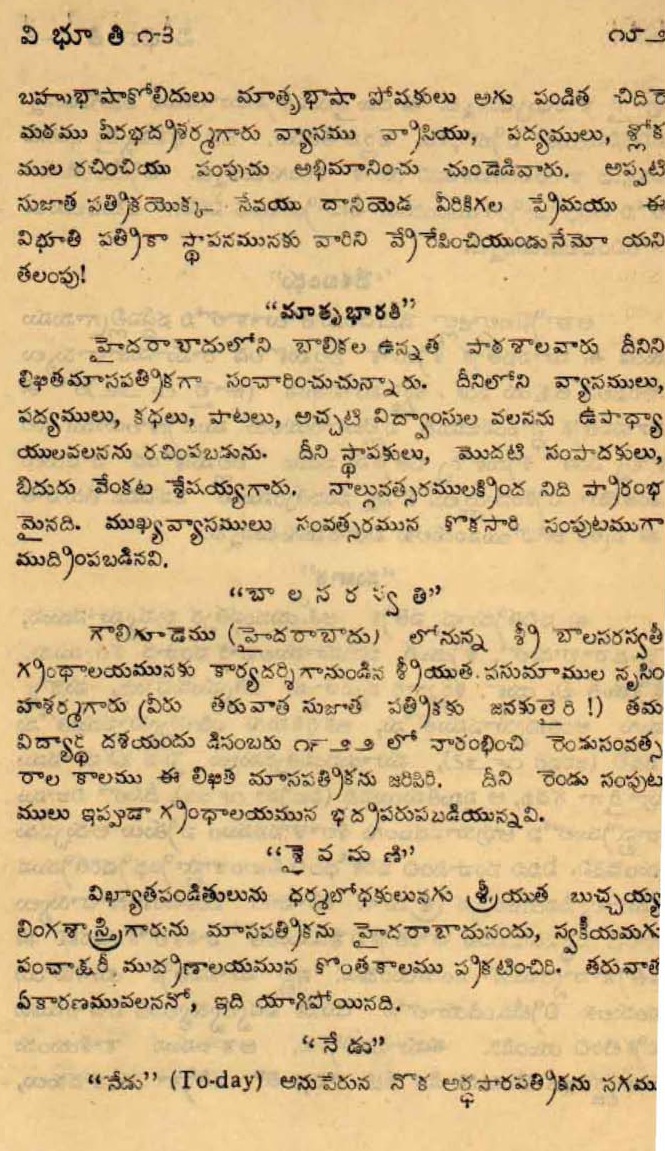 వి భూ తి ౧-3
బహుభాషాకోలిదులు మాతృభాషా పోషకులు అగు పండిత చిదిరె
మఠము వీరభద్రశర్మగారు వ్యాసము వ్రాసియు, పద్యములు, శ్లోక
ముల రచించియు పంపుచు అభిమానించు చుండెడివారు. అప్పటి
సుజాత పత్రికయొక్క సేవయు దానియెడ వీరికిగల ప్రేమయు ఈ
విభూతి పత్రికా స్థాపనమునకు వారిని వ్రేరేపించియుండునేమో యని
తలంపు!
“మాతృభారతి”
హైదరాబాదులోని బాలికల ఉన్నత పాఠశాలవారు దీనిని
లిఖితమాసపత్రికగా సంచారించుచున్నారు. దీనిలోని వ్యాసములు,
పద్యములు, కథలు, పాటలు, అచ్చటి విద్వాంసుల వలనను ఉపాధ్యా
యులవలనను రచింపబడును. దీని స్థాపకులు, మొదటి సంపాదకులు,
బిదురు వేంకట శేషయ్యగారు. నాల్గువత్సరములక్రింద నిది ప్రారంభ
మైనది. ముఖ్యవ్యాసములు సంవత్సరమున కొకసారి సంపుటముగా
ముద్రింపబడినవి.
“బా ల స ర స్వ తి”
గాలిగూడెము (హైదరాబాదు) లోనున్న శ్రీ బాలసరస్వతీ
గ్రంథాలయమునకు కార్యదర్శిగానుండిన శ్రీయుత పసుమాముల నృసిం
హశర్మగారు (వీరు తరువాత సుజాత పత్రికకు జనకులైరి !) తమ
విద్యార్థి దశయందు డిసంబరు ౧౯౨౨ లో నారంభించి రెండుసంవత్స
రాల కాలము ఈ లిఖిత మాసపత్రికను జరిపిరి. దీని రెండు సంపుట
ములు ఇప్పుడా గ్రంథాలయమున భద్రపరుపబడియున్నవి.
“శై వ మ ణి”
విఖ్యాతపండితులును ధర్మబోధకులునగు శ్రీయుత బుచ్చయ్య
లింగశాస్త్రిగారును మాసపత్రికను హైదరాబాదునందు, స్వకీయమగు
పంచాక్షరీ ముద్రణాలయమున కొంతకాలము ప్రకటించిరి. తరువాత
ఏకారణమువలననో, ఇది యాగిపోయినది.
“నే డు”
“నేడు” (To-day) అనుపేరున నొక అర్ధవారపత్రికను సగము